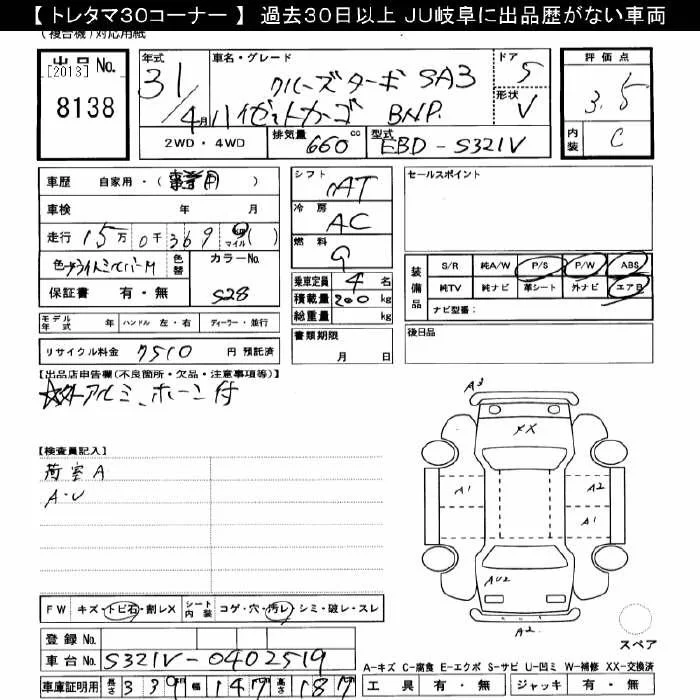 【 トレタマ30コーナー 】 過去30日以上 JU岐阜に出品歴がない車両
(複合機)対応用紙
出品 No.
[2013]
8138
年式
31/4月
車名・グレード
クルーズターボ SA3
ハイゼットカーゴ BNP.
ドア
5
形状
V
評価点
3.5
内装
C
2WD・4WD
排気量
660 cc
型式
EBD-S321V
車歴 自家用・(事業用)
車検 年 月
走行 15万 0千 369 km マイル ( )
色 ブライトシルバーM 色替 カラーNo.
S28
保証書 有・無
モデル年式 年 ハンドル 左・右 ディーラー・並行
リサイクル料金 7510 円 預託済
シフト
AT
冷房
AC
燃料
G
乗車定員 4 名
積載量 200 kg
総重量 kg
書類期限
月 日
セールスポイント
装備品
S/R 純A/W P/S P/W ABS
純TV 純ナビ 革シート 外ナビ エアB
ナビ型番:
後日品
【出品店申告欄(不良箇所・欠品・注意事項等)】
☆外アルミ、ホーン付
【検査員記入】
荷室A
A・U
A3
XX
A1
A2
A1
AU2
A2
スペア
FW キズ・トビ石・割レX シート内装 コゲ・穴・汚レ・シミ・破レ・スレ
登録 No.
車台 No. S321V-0402519
A-キズ C-腐食 E-エクボ S-サビ U-凹ミ W-補修 XX-交換済
車庫証明用 長さ 330 幅 147 高さ 187
工具 有・無 ジャッキ 有・無